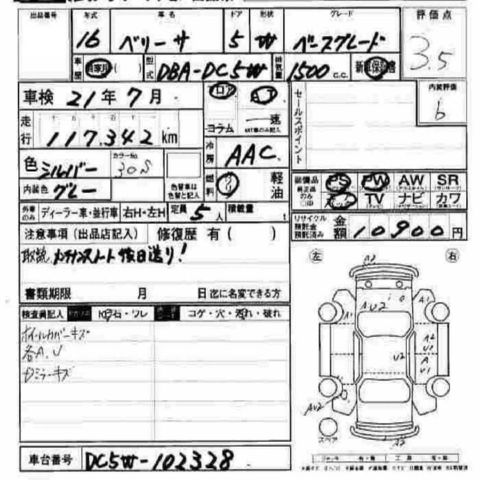 出品番号 年式 車名 ドア 形状 グレード 評価点
16 ベリーサ 5 W ベースグレード 3.5
車歴 自家用( ) 型式 DBA-DC5W 排気量 1500 c.c. 新車保証書
車検 21年7月 コラム 速 セールスポイント 内装評価
b
走行 117,342 km
色 シルバー カラーNo. 30S 冷房 AAC
内装色 グレー 燃料 軽油 装備品 PS PW AW SR
TV ナビ カワ
外車のみ ディーラー車・並行車 右H・左H 定員 5人 積載量 t
リサイクル預託金預託済み 金額 10900円
注意事項(出品店記入) 修復歴 有( )
取説 後日送り!
左 右
書類期限 月 日迄に名変できる方
検査員記入 飛石・ワレ コゲ・穴・汚れ・破れ
ホイールカバーキズ
各A.U
Dミラーキズ
A2
A1
A1
AU2
U2
A2
U2
A
U1
AU2
A2
スペア
車台番号 DC5W-102328